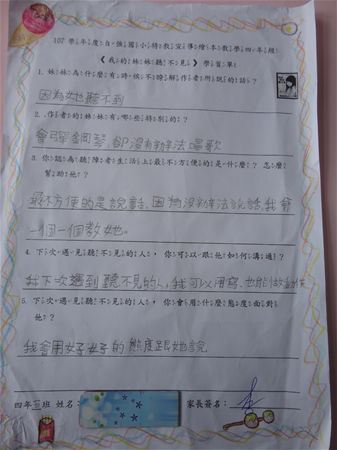 107學年度自強國小特教宣導繪本教學四年級
《我的妹妹聽不見》學習單
1、妹妹為什麼有時候不瞭解作者所說的話？
因為她聽不到
2、作者的妹妹有哪些特別的？
會彈鋼琴，卻沒有辦法唱歌
3、你認為聽障者生活上最不方便的是什麼？怎麼
幫助他？
最不方便的是說話，因為沒辦法說話，我會
一個一個教她。
4、下次遇見聽不見的人，你可以跟他如何溝通？
我下次遇到聽不見的人，我可以用寫，也能做動作
5、下次遇見聽不見的人，你會用什麼態度面對
他？
我會用好好的態度跟她說
四年 班 姓名： 家長簽名：